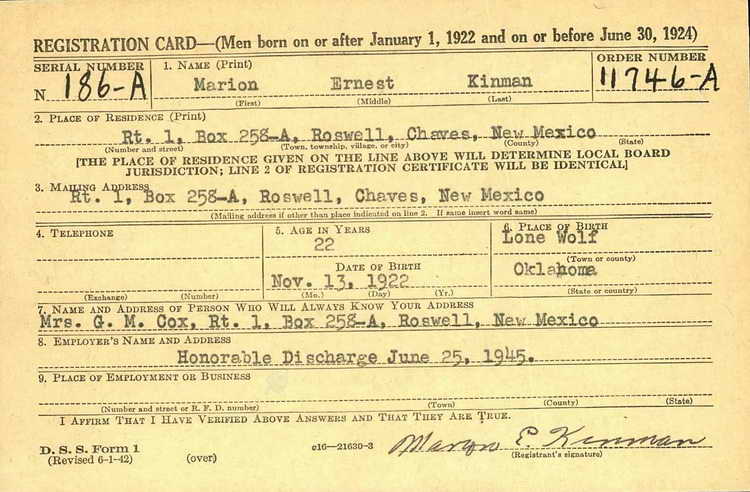 REGISTRATION CARD—(Men born on or after January 1, 1922 and on or before June 30, 1924)
SERIAL NUMBER
N 186-A
1. NAME (Print)
Marion Ernest Kinman
(First) (Middle) (Last)
ORDER NUMBER
11746-A
2. PLACE OF RESIDENCE (Print)
Rt. 1, Box 258-A, Roswell, Chaves, New Mexico
(Number and street) (Town, township, village, or city) (County) (State)
[THE PLACE OF RESIDENCE GIVEN ON THE LINE ABOVE WILL DETERMINE LOCAL BOARD
JURISDICTION; LINE 2 OF REGISTRATION CERTIFICATE WILL BE IDENTICAL]
3. MAILING ADDRESS
Rt. 1, Box 258-A, Roswell, Chaves, New Mexico
(Mailing address if other than place indicated on line 2. If same insert word same)
4. TELEPHONE
(Exchange) (Number)
5. AGE IN YEARS
22
DATE OF BIRTH
Nov. 13, 1922
(Mo.) (Day) (Yr.)
6. PLACE OF BIRTH
Lone Wolf
(Town or county)
Oklahoma
(State or country)
7. NAME AND ADDRESS OF PERSON WHO WILL ALWAYS KNOW YOUR ADDRESS
Mrs. G. M. Cox, Rt. 1, Box 258-A, Roswell, New Mexico
8. EMPLOYER'S NAME AND ADDRESS
Honorable Discharge June 25, 1945.
9. PLACE OF EMPLOYMENT OR BUSINESS
(Number and street or R. F. D. number) (Town) (County) (State)
I AFFIRM THAT I HAVE VERIFIED ABOVE ANSWERS AND THAT THEY ARE TRUE.
D. S. S. Form 1
(Revised 6-1-42) (over)
c16—21630-3
Marion E. Kinman
(Registrant's signature)